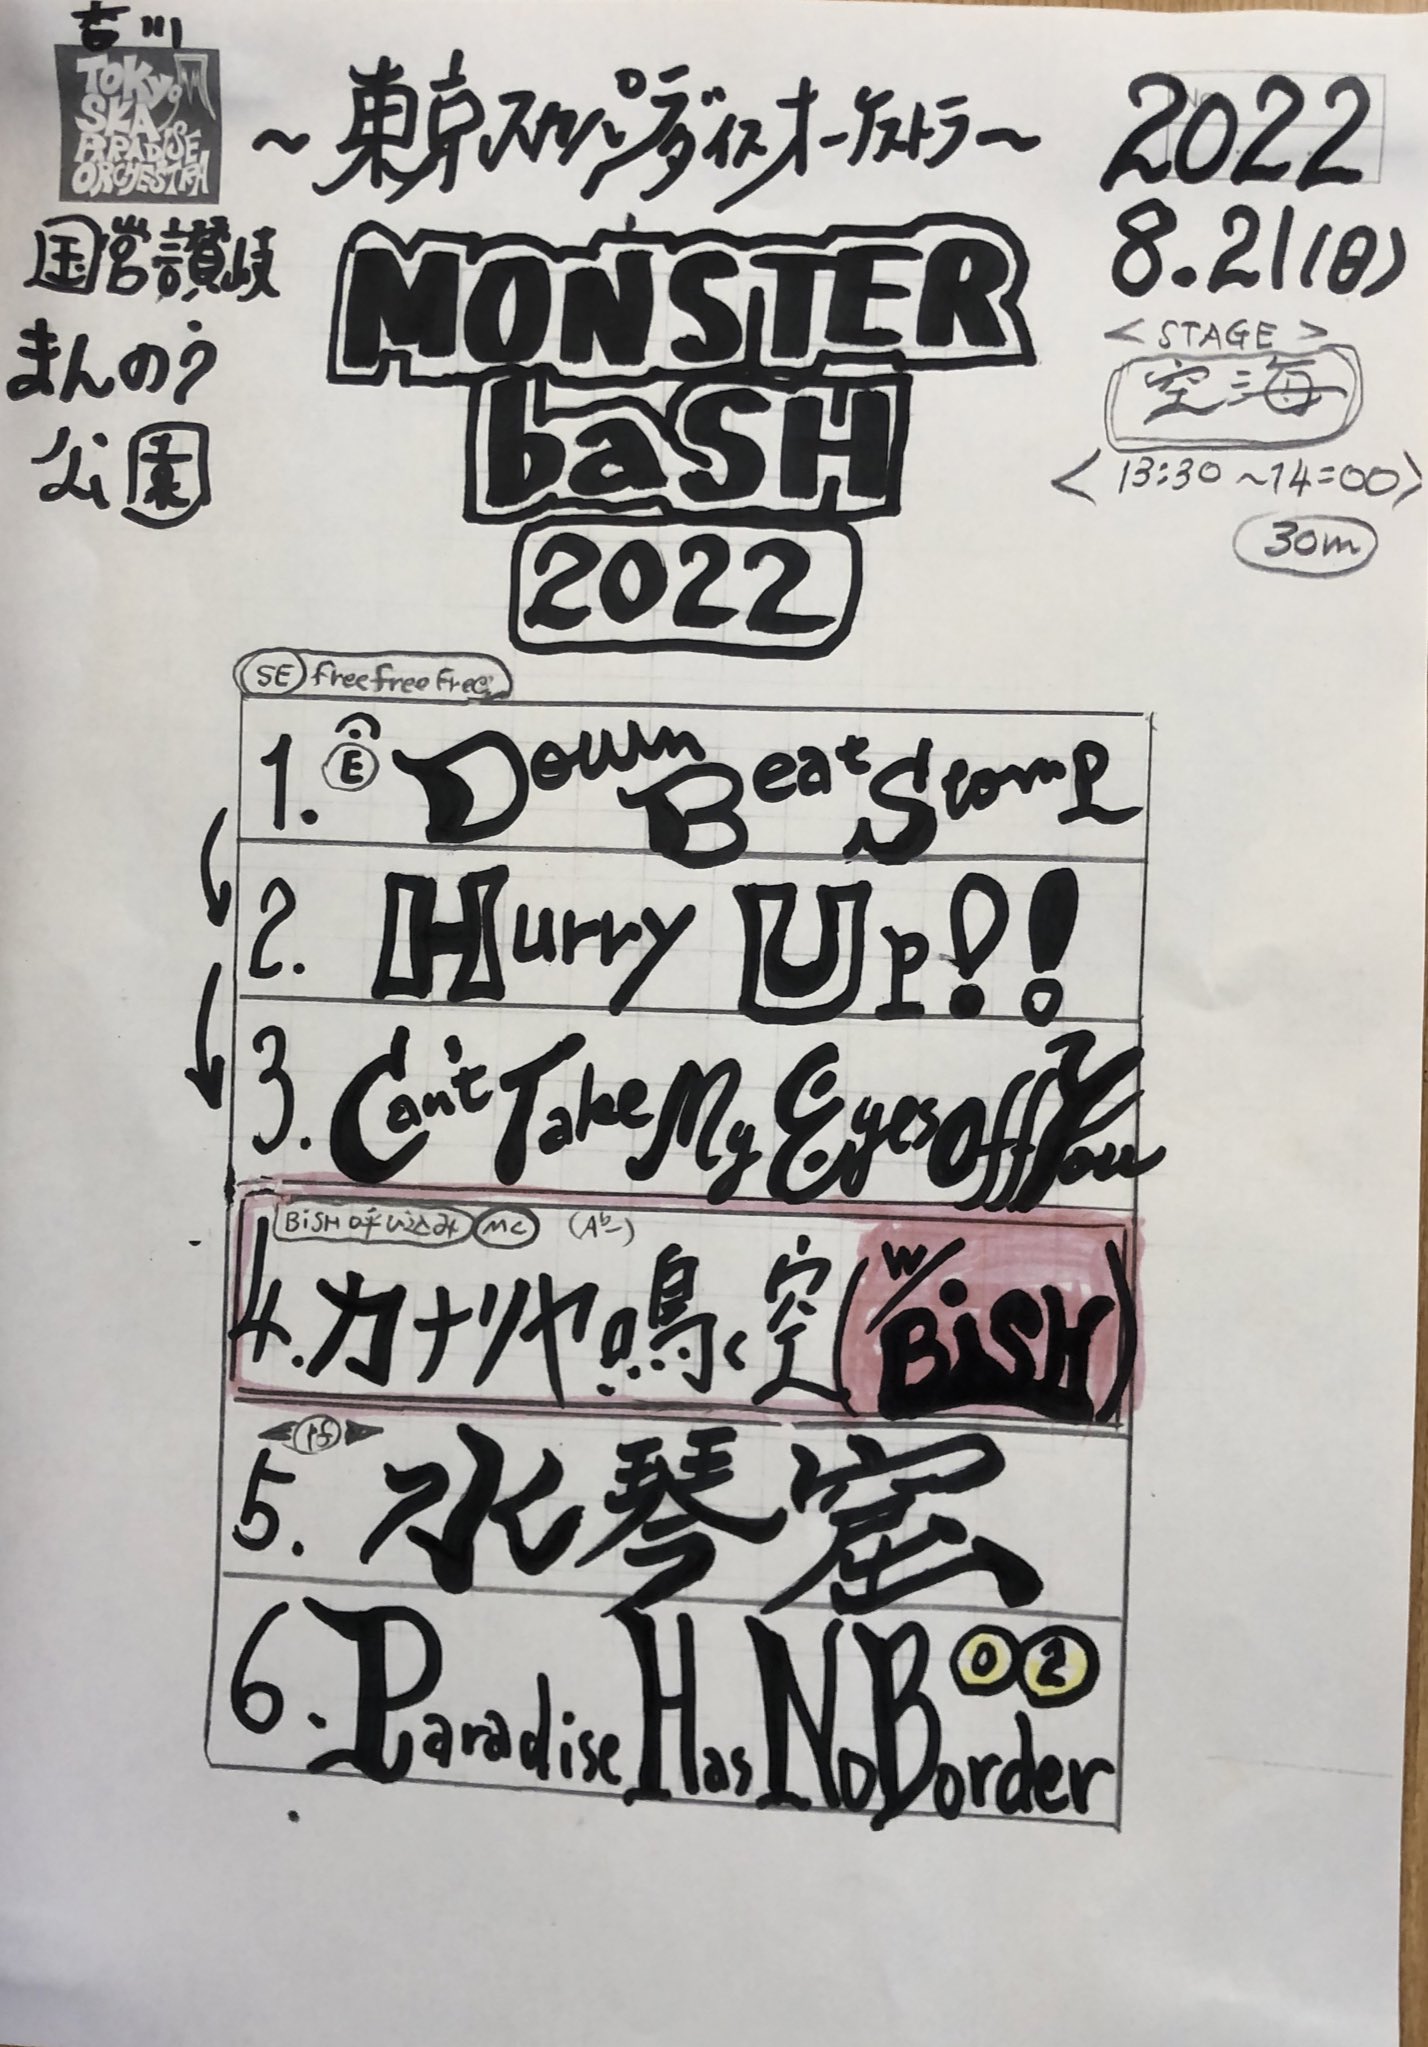 吉川
TOKYO
SKA
PARADISE
ORCHESTRA
〜東京スカパラダイスオーケストラ〜
2022
8.21(日)
国営讃岐
まんのう
公園
MONSTER
baSH
2022
<STAGE>
空海
<13:30〜14:00>
30m
SE freefreefree
1. E Down Beat Stomp
2. Hurry Up!!
3. Can't Take My Eyes Off You
BiSH呼び込み MC (A♭-)
4. カナリヤ鳴く空(w/BiSH)
5. 水琴窟
6. Paradise Has No Border 0 2